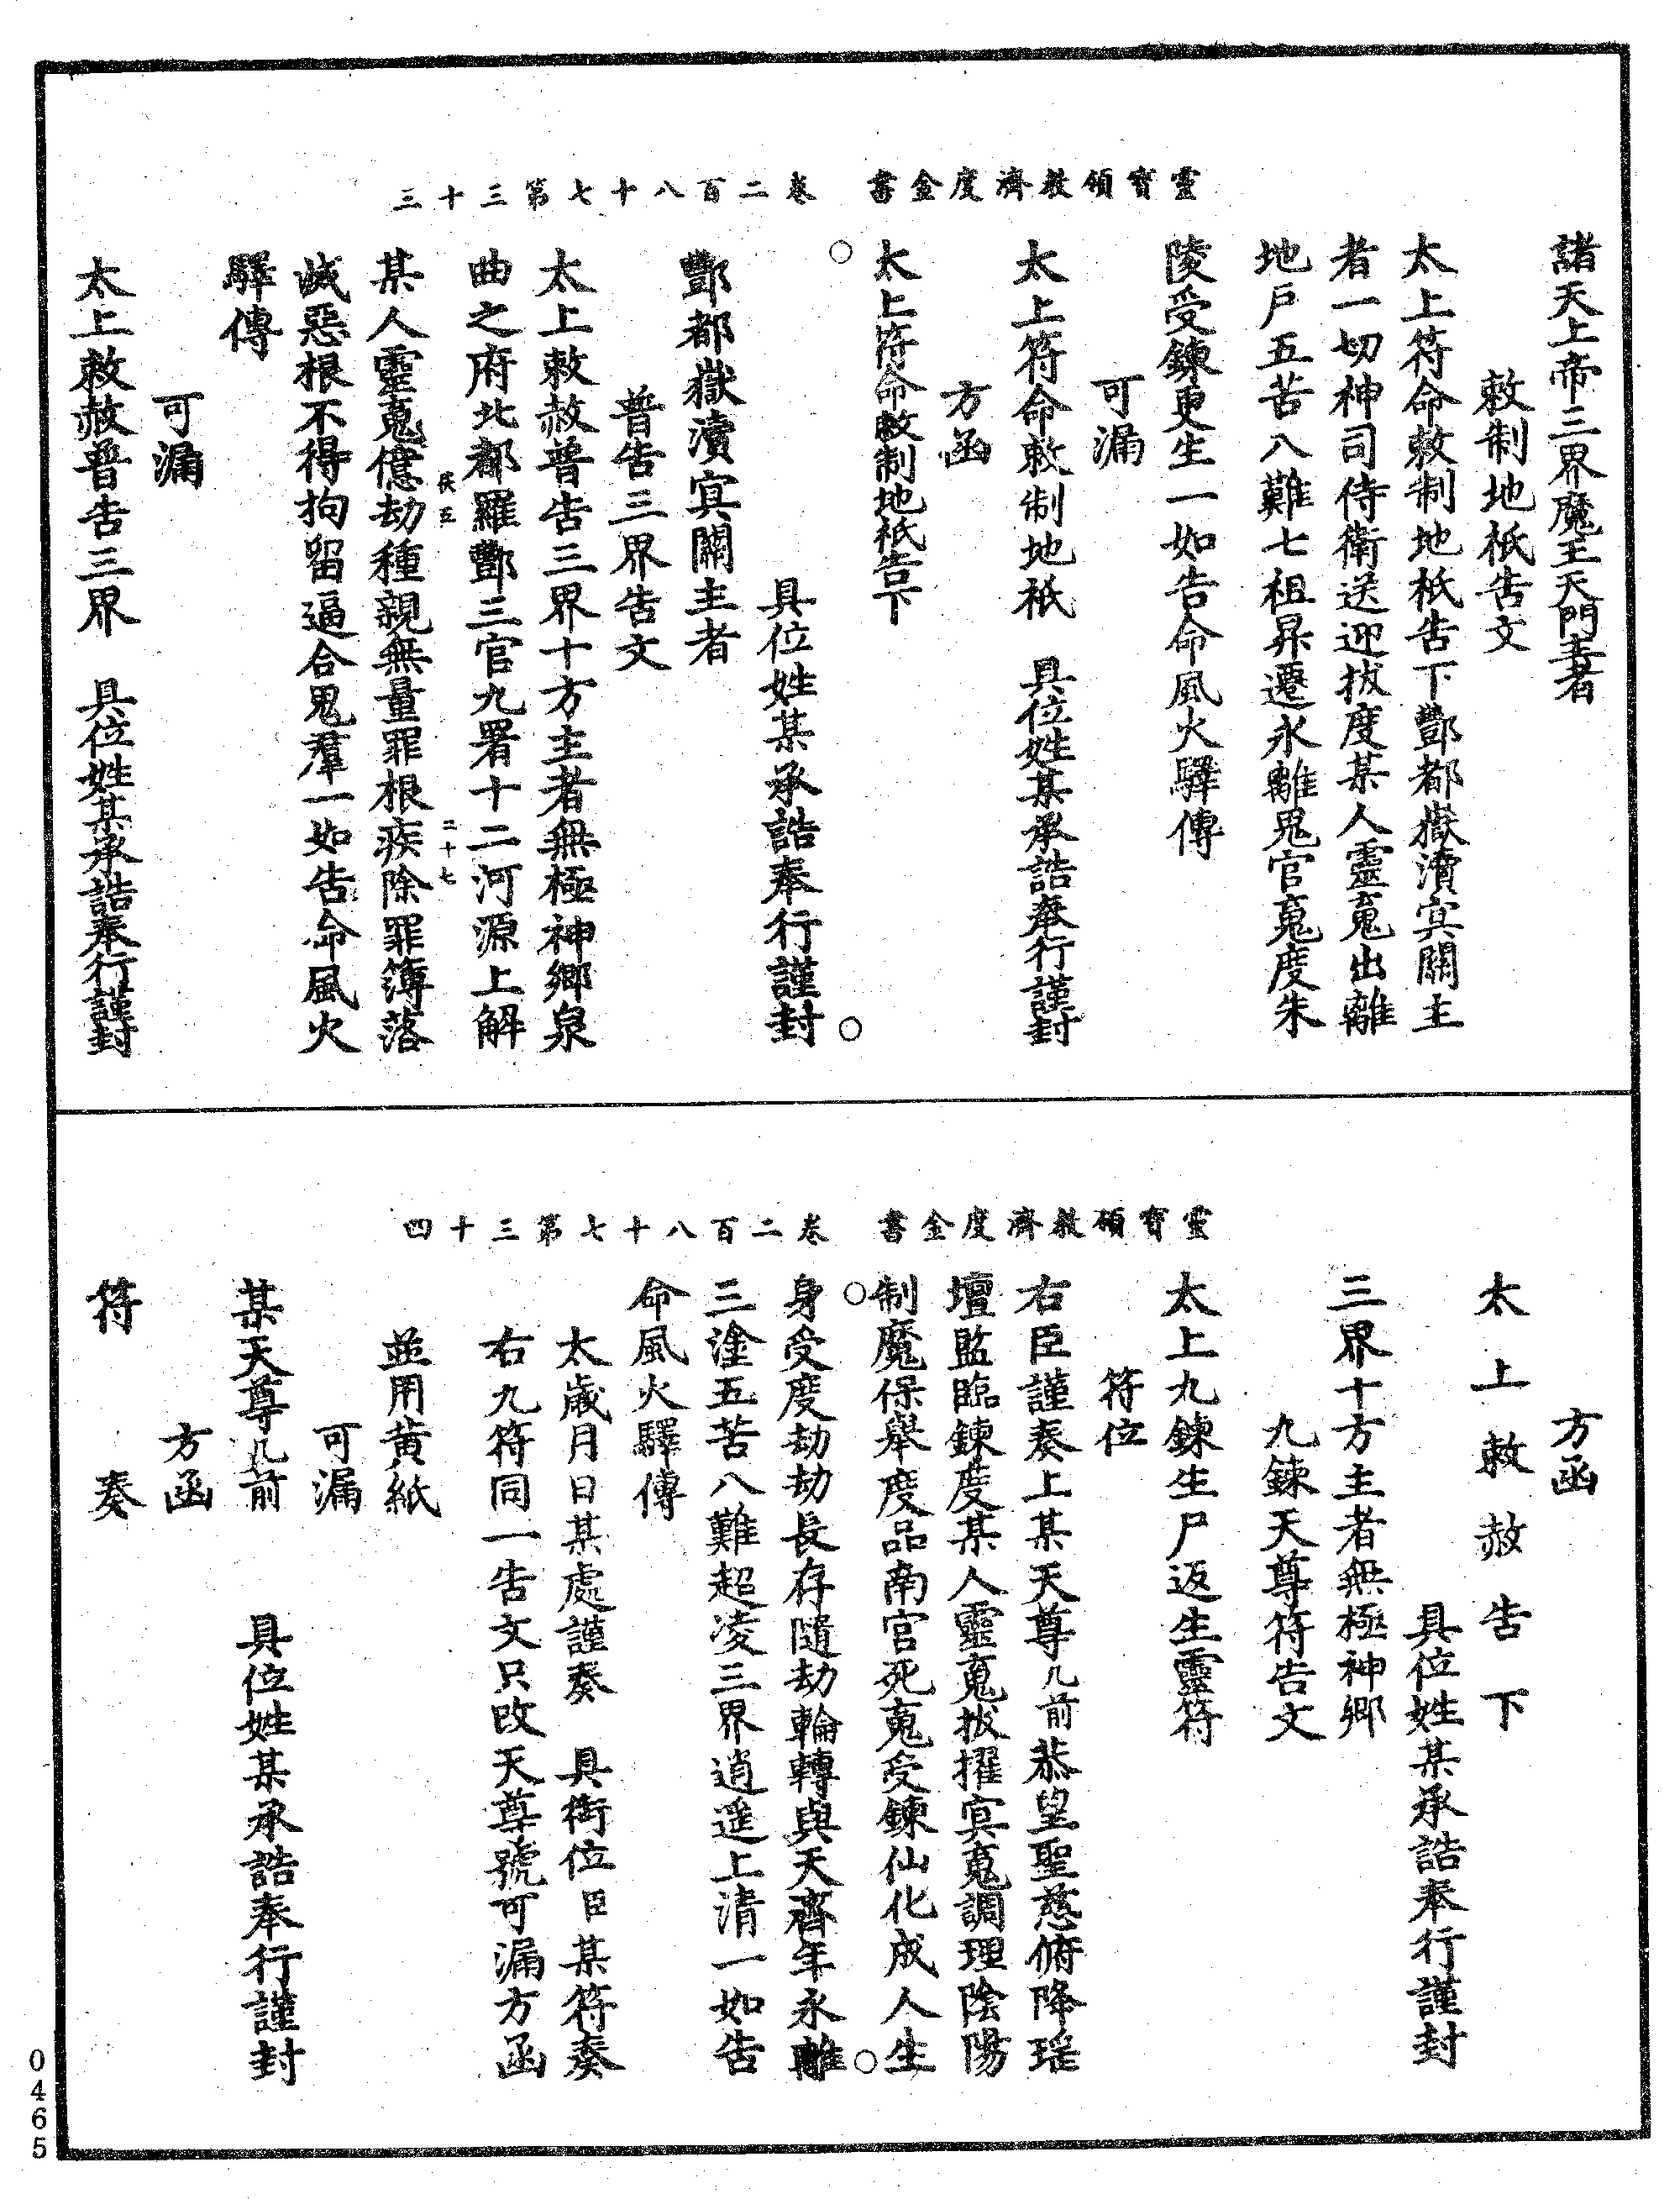 靈寶領教濟度金書　卷二百八十七第三十三
諸天上帝三界魔王天門主者
敕制地祇告文
太上符命敕制地祇告下酆都嶽瀆冥關主
者一切神司侍衛送迎拔度某人靈䰟出離
地戶五苦八難七祖昇遷永離鬼官䰟度朱
陵受鍊更生一如告命風火驛傳
可漏
太上符命敕制地祇　具位姓某承誥奉行謹封
方函
太上符命敕制地祇告下
具位姓某承誥奉行謹封
酆都嶽瀆冥關主者
普告三界告文
太上敕赦普告三界十方主者無極神鄉泉
曲之府北都羅酆三官九署十二河源上解
某人靈䰟億劫種親無量罪根疾除罪簿落
滅惡根不得拘留逼合鬼羣一如告命風火
驛傳
可漏
太上敕赦普告三界　具位姓某承誥奉行謹封
二十七
靈寶領教濟度金書　卷二百八十七第三十四
方函
太上敕赦告下
具位姓某承誥奉行謹封
三界十方主者無極神鄉
九鍊天尊符告文
太上九鍊生尸返生靈符
符位
右臣謹奏上某天尊几前恭望聖慈俯降瑤
壇監臨鍊度某人靈䰟拔擢冥䰟調理陰陽
制魔保舉度品南宫死䰟受鍊仙化成人生
身受度劫劫長存隨劫輪轉與天齊年永離
三塗五苦八難超凌三界逍遥上清一如告
命風火驛傳
太歲月日某處謹奏　具銜位臣某符奏
右九符同一告文只改天尊號可漏方函
並用黄紙
可漏
某天尊几前　具位姓某承誥奉行謹封
方函
符　奏
0465